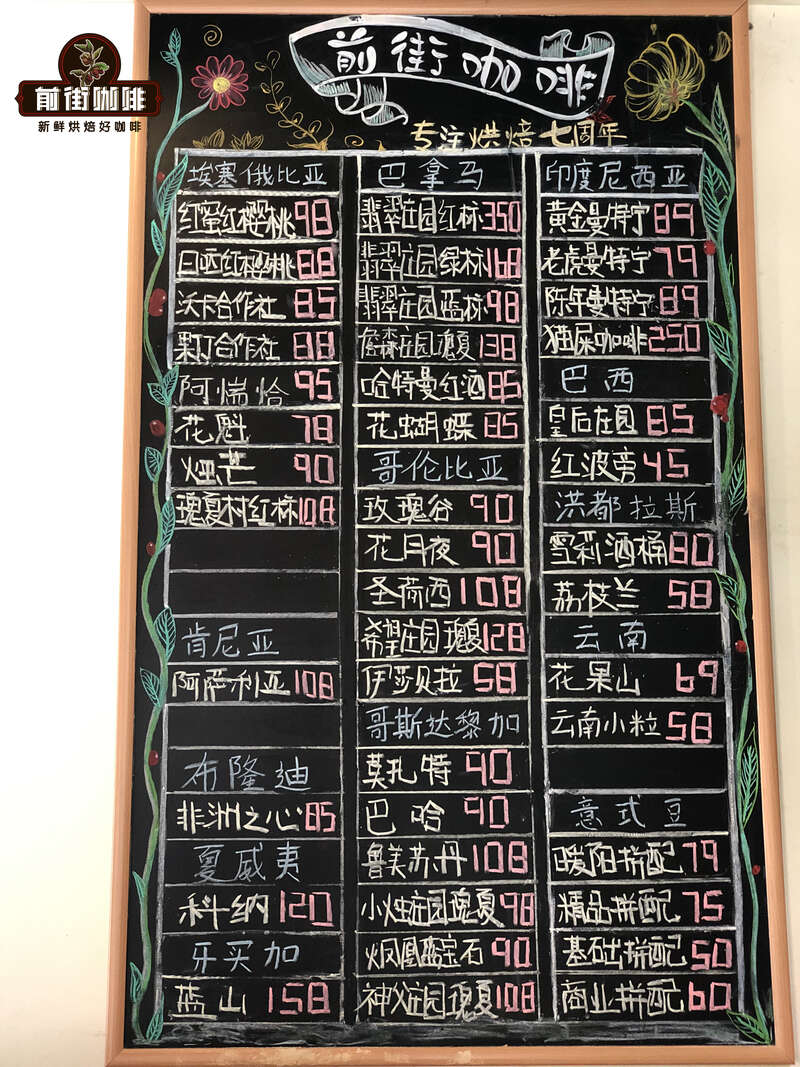 前街咖啡
新鲜烘焙好咖啡
前街咖啡
专注烘焙七周年
埃塞俄比亚
红蜜红樱桃 98
日晒红樱桃 88
沃卡合作社 85
果丁合作社 88
阿喘恰 95
花魁 78
烛芒 90
瑰夏村红标 108
肯尼亚
阿萨利亚 108
布隆迪
非洲之心 85
夏威夷
科纳 120
牙买加
蓝山 158
巴拿马
翡翠庄园红标 350
翡翠庄园绿标 168
翡翠庄园蓝标 98
詹森庄园瑰夏 138
哈特曼红酒 85
花蝴蝶 85
哥伦比亚
玫瑰谷 90
花月夜 90
圣荷西 108
希望庄园瑰夏 128
伊莎贝拉 58
哥斯达黎加
莫扎特 90
巴哈 90
鲁美苏丹 108
小烛庄园瑰夏 98
火凤凰蓝宝石 90
神父庄园瑰夏 108
印度尼西亚
黄金曼特宁 89
老虎曼特宁 79
陈年曼特宁 89
猫屎咖啡 250
巴西
皇后庄园 85
红波旁 45
洪都拉斯
雪莉酒桶 80
荔枝兰 58
云南
花果山 69
云南小粒 58
意式豆
暖阳拼配 79
精品拼配 75
基础拼配 50
商业拼配 60